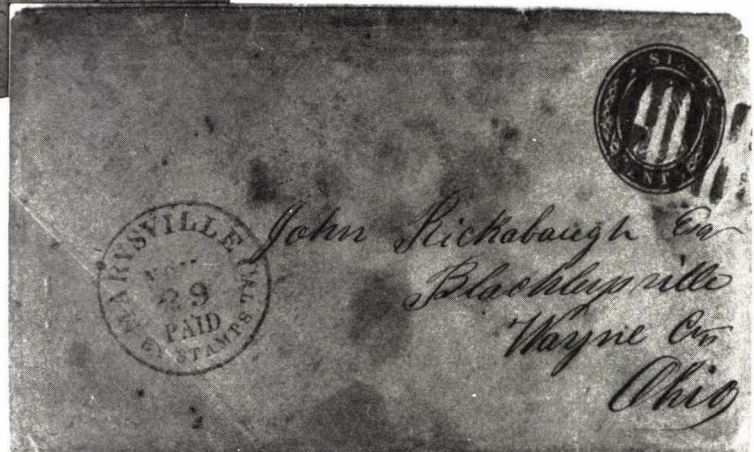 SIX
CENTS
MARYSVILLE
NOV
29
PAID
BY STAMPS
John Rickabaugh Esq
Blachleysville
Wayne Co
Ohio